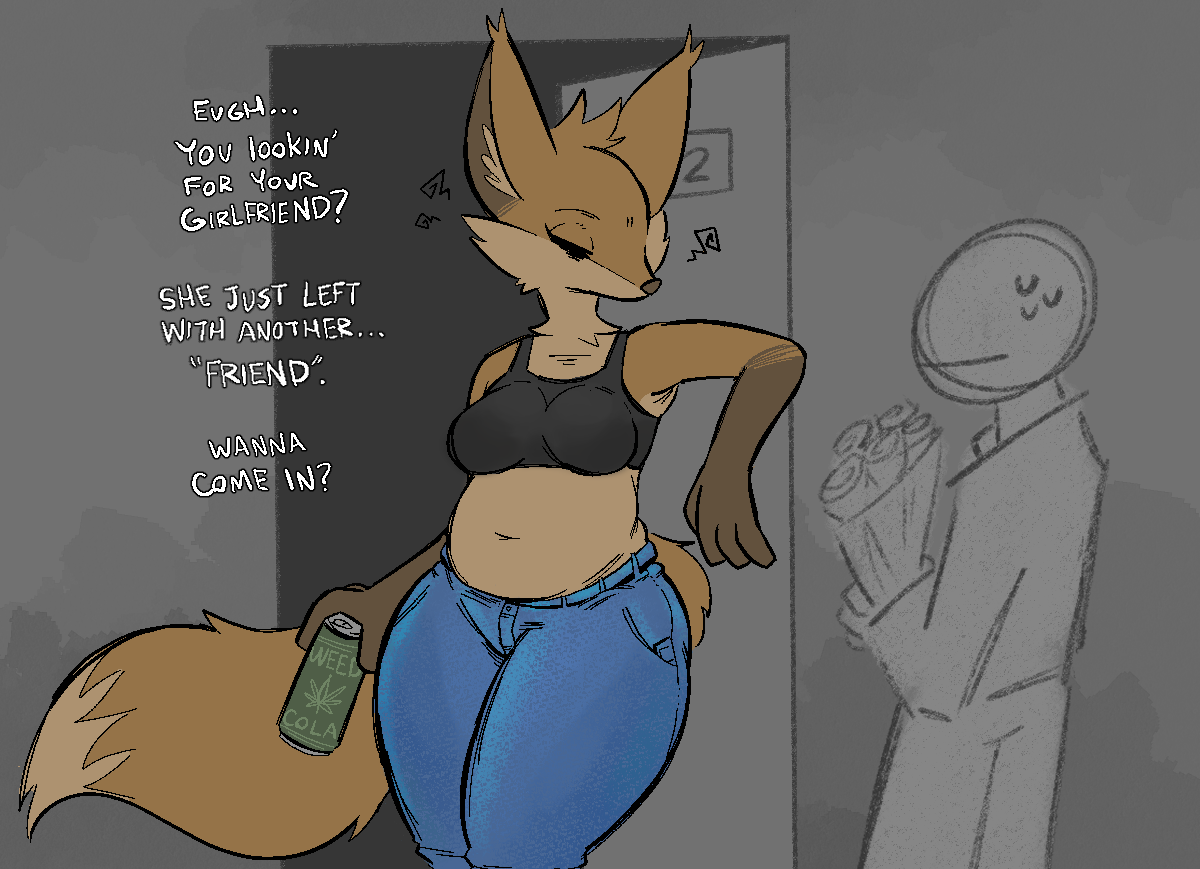 EUGH...
YOU LOOKIN'
FOR YOUR
GIRLFRIEND?
SHE JUST LEFT
WITH ANOTHER...
"FRIEND".
WANNA
COME IN?
2
WEED
COLA